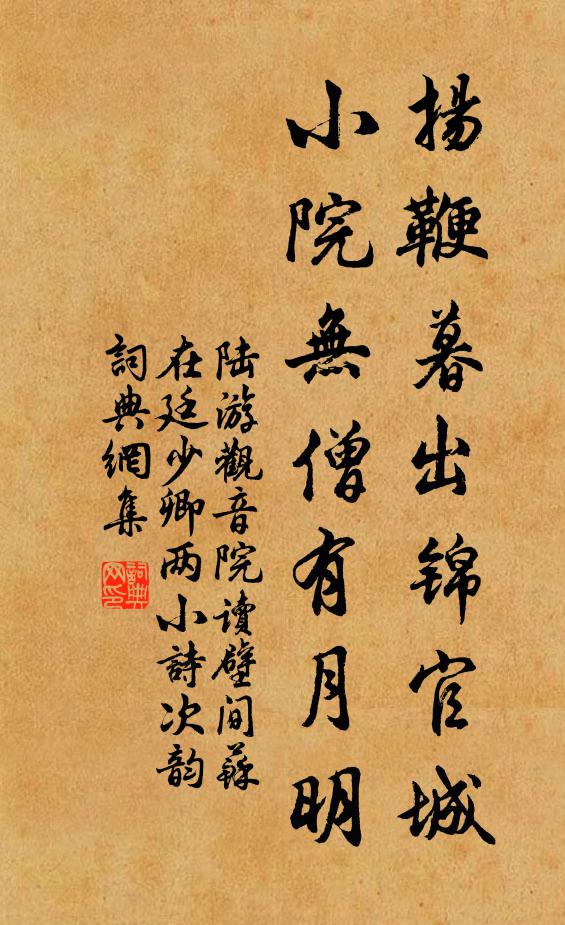 揚鞭暮出錦官城
小院無僧有月明
陆游觀音院讀壁间蘇
在廷少卿两小詩次韵
詞典網集
詞典网印